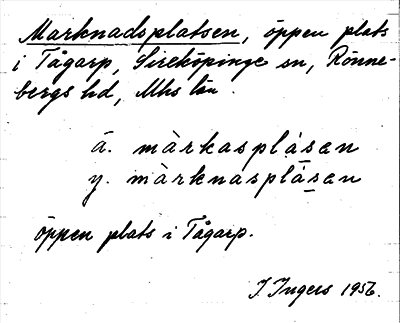 Marknadsplatsen, öppen plats
i Tågarp, Sireköpinge sn, Rönne-
bergs hd, Mhs län.
ä. màrkasplạ́sen
y. màrknasplá̱sen
öppen plats i Tågarp.
I. Ingers 1956.